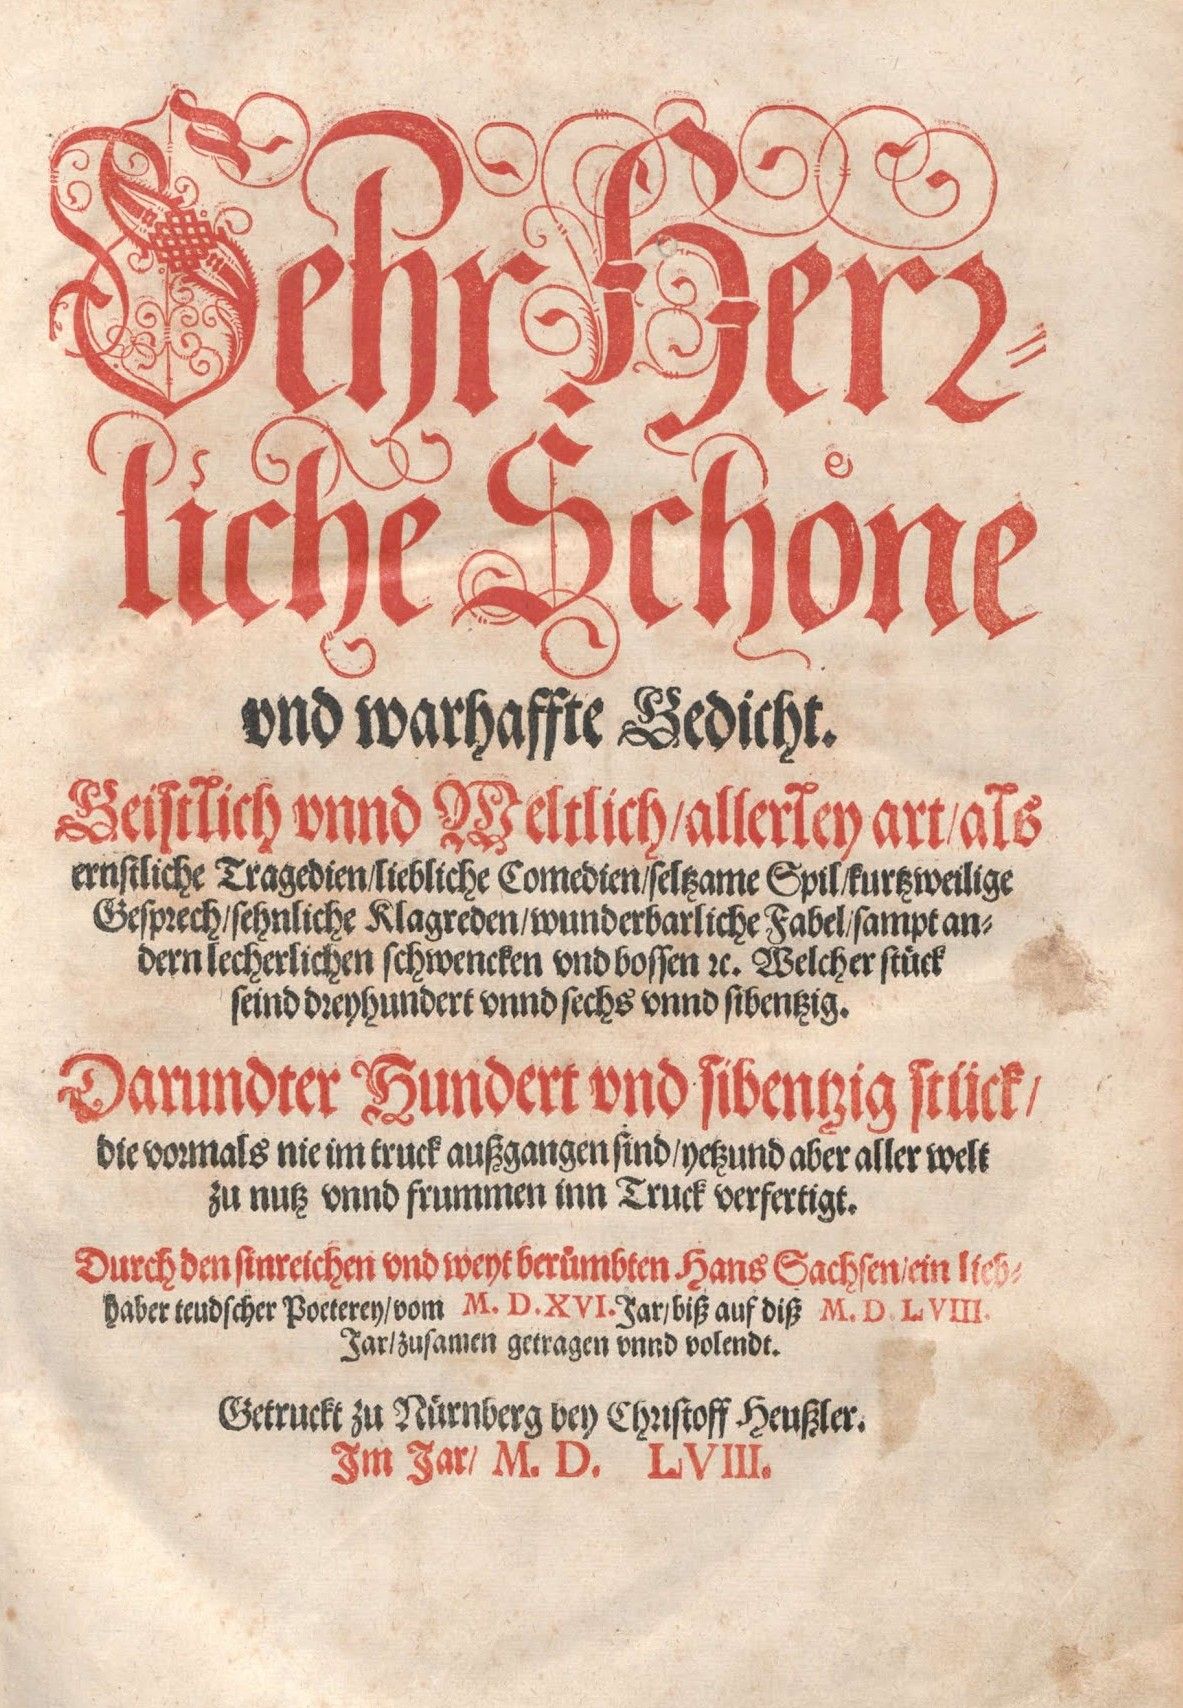 Sehr Herꝛ⸗
liche Schoͤne
vnd warhaffte Gedicht.
Geistlich vnnd Weltlich/allerley art/als
ernstliche Tragedien/liebliche Comedien/seltzame Spil/kurtzweilige
Gesprech/sehnliche Klagreden/wunderbarliche Fabel/sampt an⸗
dern lecherlichen schwencken vnd bossen ꝛc. Welcher stück
seind dreyhundert vnnd sechs vnnd sibentzig.
Darundter Hundert vnd sibentzig stück/
die vormals nie im truck außgangen sind/yetzund aber aller welt
zu nutz vnnd frummen inn Truck verfertigt.
Durch den sinreichen vnd weyt berümbten Hans Sachsen/ein lieb⸗
haber teudscher Poeterey/vom M. D. XVI. Jar/biß auf diß M. D. LVIII.
Jar/zusamen getragen vnnd volendt.
Getruckt zu Nürnberg bey Christoff Heußler.
Im Jar/ M. D. LVIII.